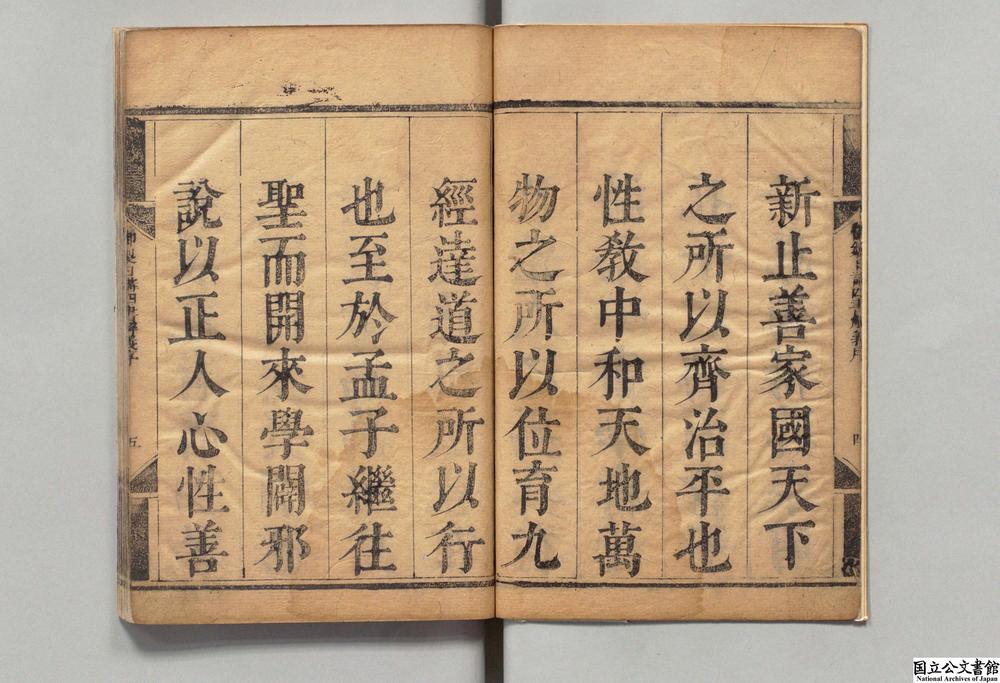 新止善家國天下
之所以齊治平也
性敎中和天地萬
物之所以位育九
經達道之所以行
也至於孟子繼往
聖而開來學闢邪
說以正人心性善
四
五
国立公文書館
National Archives of Japan